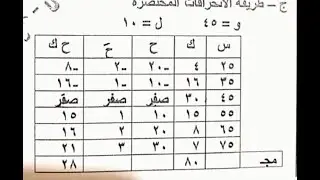 ج – طريقة الانحرافات المختصرة
و = ٤٥ ل = ١٠
س ك ح حَ حَ ك
٢٥ ٤ -٢٠ -٢ -٨
٣٥ ١٦ -١٠ -١ -١٦
٤٥ ٣٠ صفر صفر صفر
٥٥ ١٥ ١٠ ١ ١٥
٦٥ ٨ ٢٠ ٢ ١٦
٧٥ ٧ ٣٠ ٣ ٢١
مجـ ٨٠ ٢٨